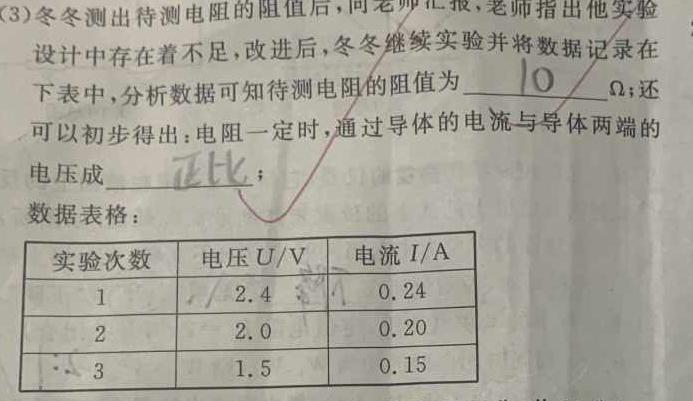 (3)冬冬测出待测电阻的阻值后,向老师汇报,老师指出他实验
设计中存在着不足,改进后,冬冬继续实验并将数据记录在
下表中,分析数据可知待测电阻的阻值为 10 Ω;还
可以初步得出:电阻一定时,通过导体的电流与导体两端的
电压成 正比 ;
数据表格:
实验次数 电压 U/V 电流 I/A
1 2.4 0.24
2 2.0 0.20
3 1.5 0.15